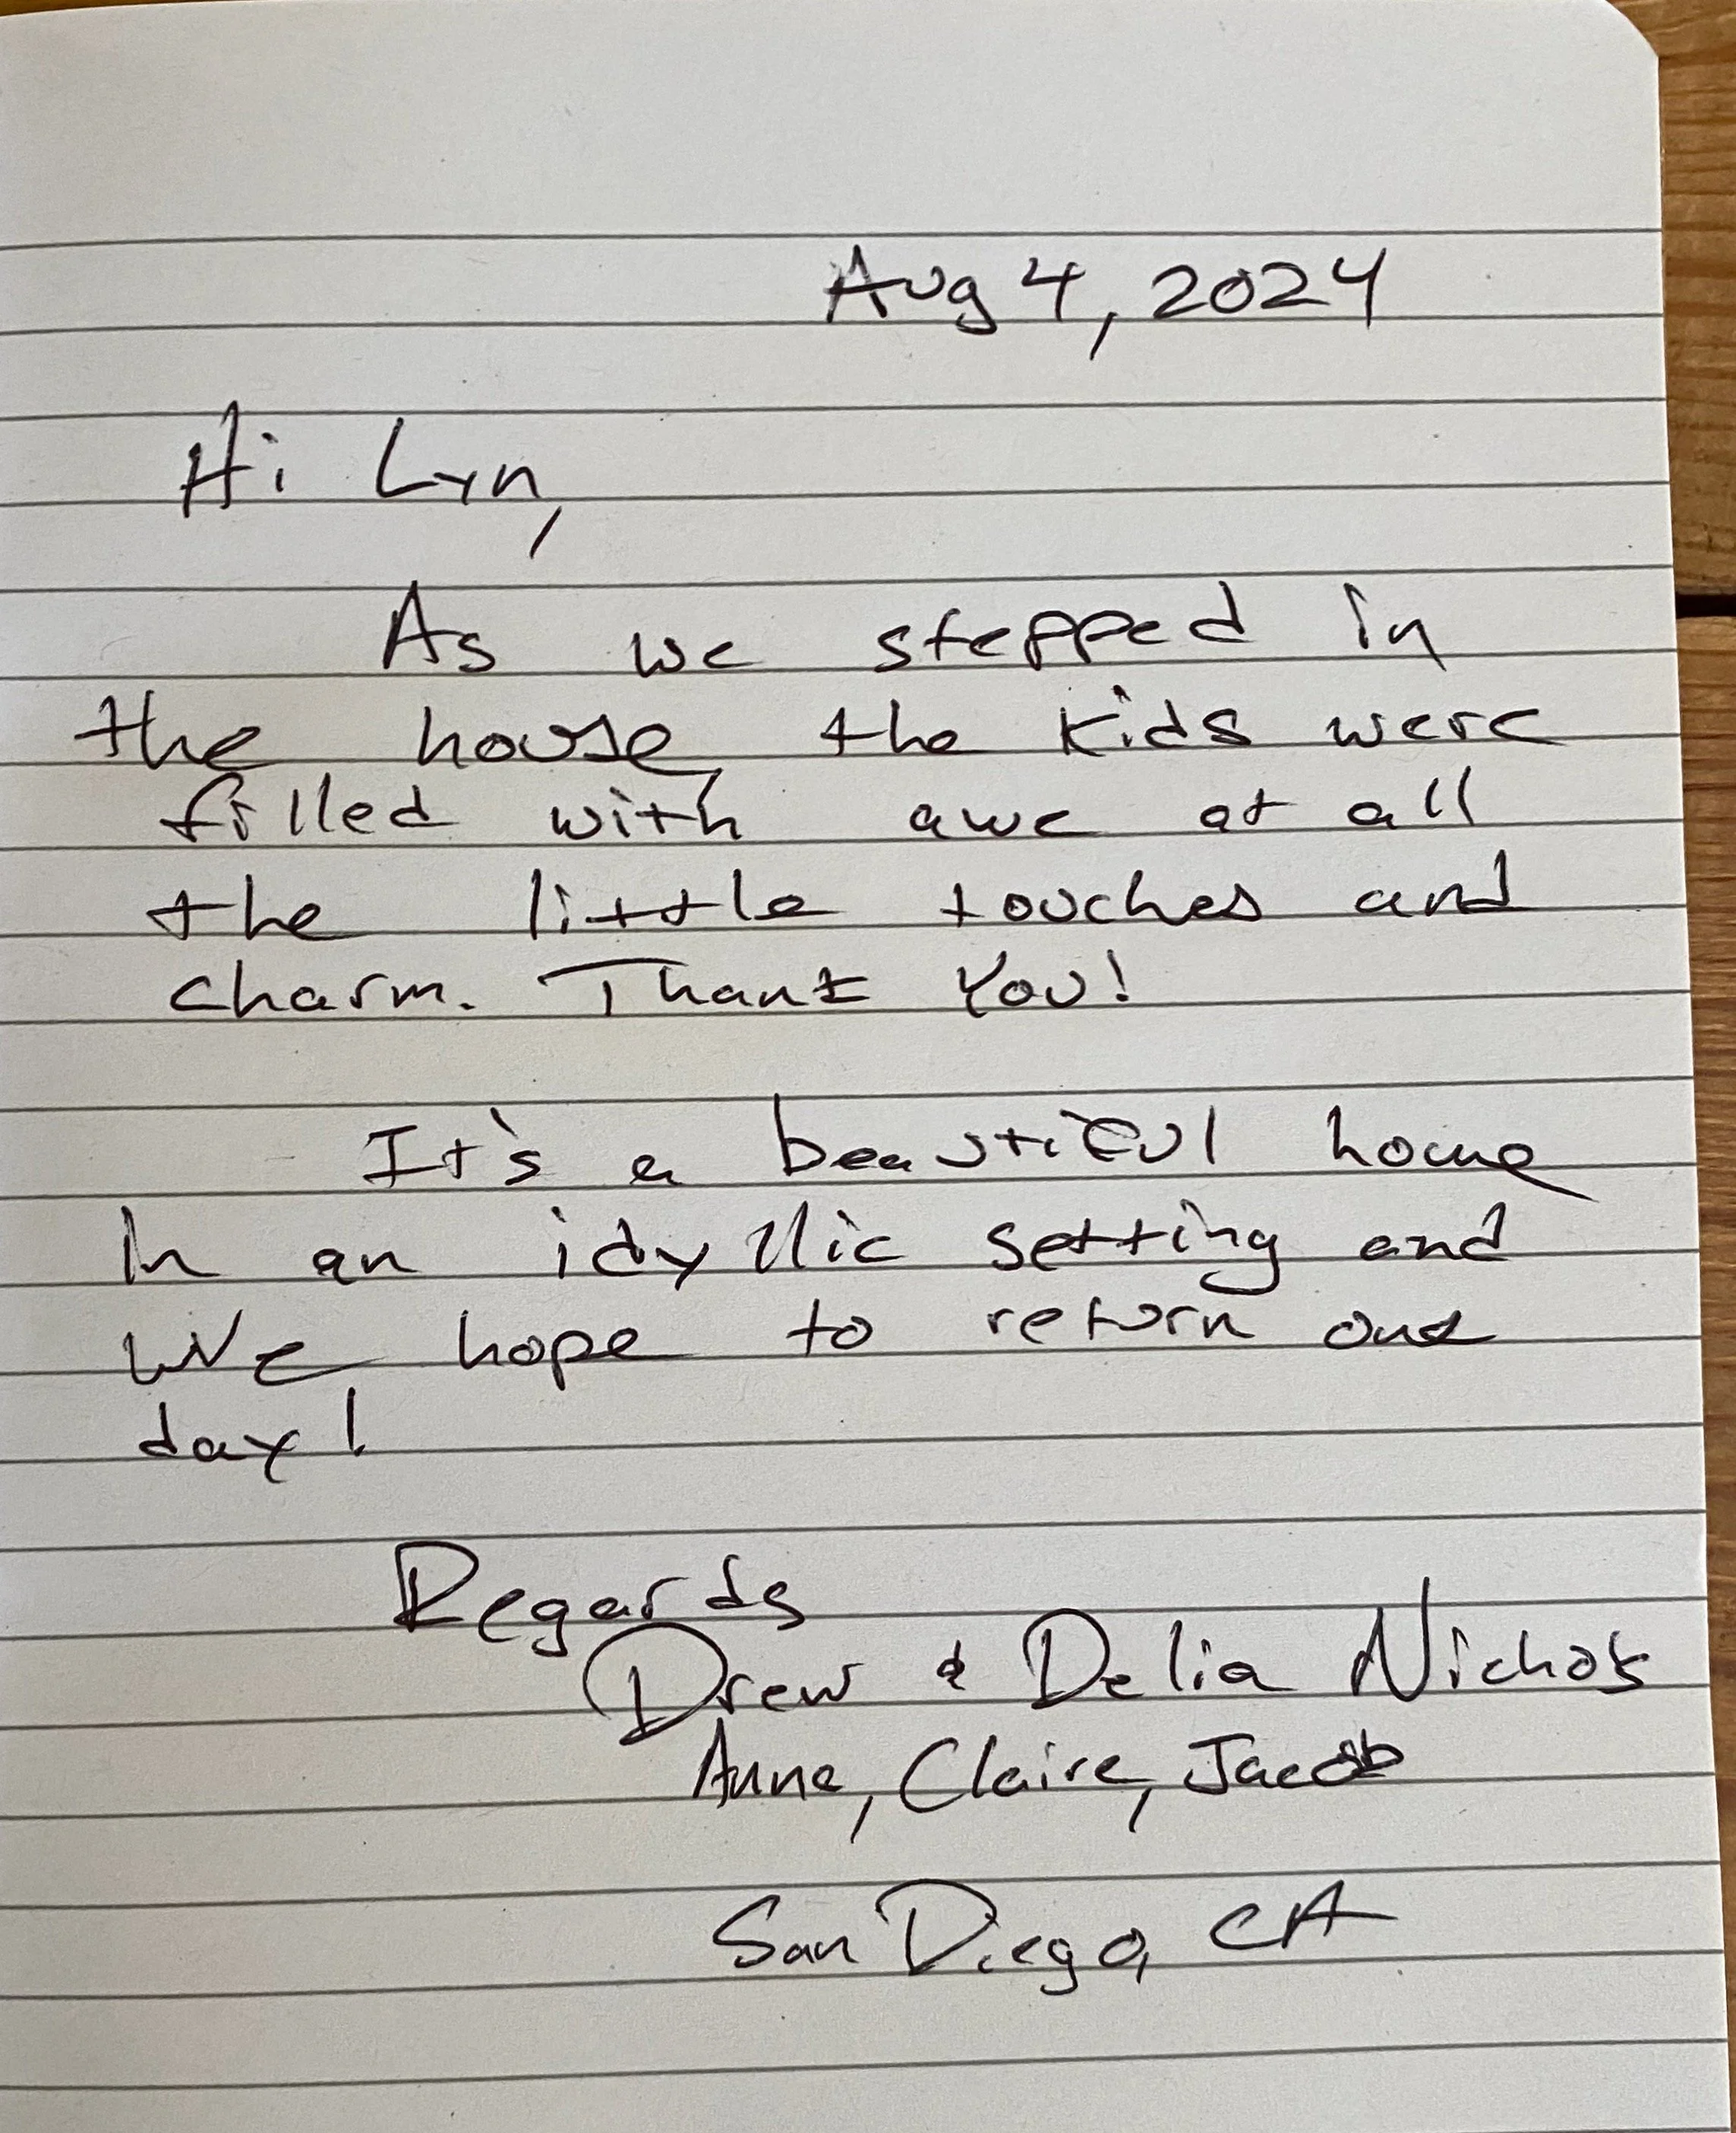 Aug 4, 2024
Hi Lyn,
As we stepped in
the house, the kids were
filled with awe at all
the little touches and
charm. Thank You!
It's a beautiful home
in an idyllic setting and
we hope to return one
day!
Regards
Drew & Delia Nichols
Anne, Claire, Jacob
San Diego, CA